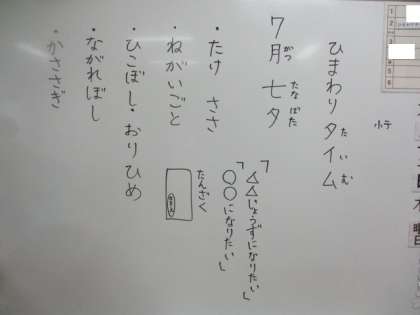 ひまわりタイム
たいむ
7月 七夕
がつ たなばた
・たけ ささ
・ねがいごと
・ひこぼし・おりひめ
・ながれぼし
・かささぎ
「△△じょうずになりたい」
「○○になりたい」
たんざく